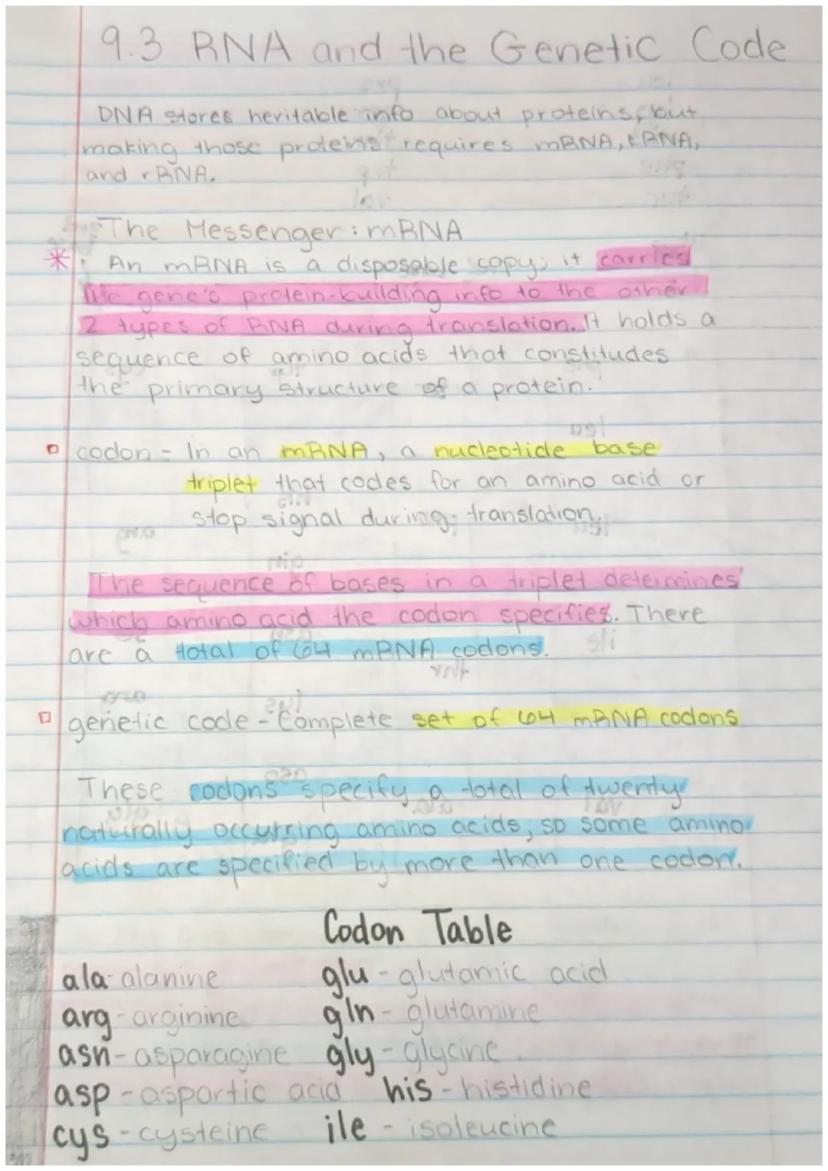 9.3 RNA and the Genetic Code
DNA stores heritable info about proteins, but
making those proteins requires mRNA, tRNA,
and rRNA.
The Messenger: mRNA
* An mRNA is a disposable copy; it carries
the gene's protein-building info to the other
2 types of RNA during translation. It holds a
sequence of amino acids that constitudes
the primary structure of a protein.
codon - In an mRNA, a nucleotide base
triplet that codes for an amino acid or
stop signal during translation.
The sequence of bases in a triplet determines
which amino acid the codon specifies. There
are a total of 64 mRNA codons.
genetic code - Complete set of 64 mRNA codons
These codons specify a total of twenty
naturally occurring amino acids, so some amino
acids are specified by more than one codon.
Codon Table
ala - alanine glu - glutamic acid
arg - arginine gln - glutamine
asn - asparagine gly - glycine
asp - aspartic acid his - histidine
cys - cysteine ile - isoleucine